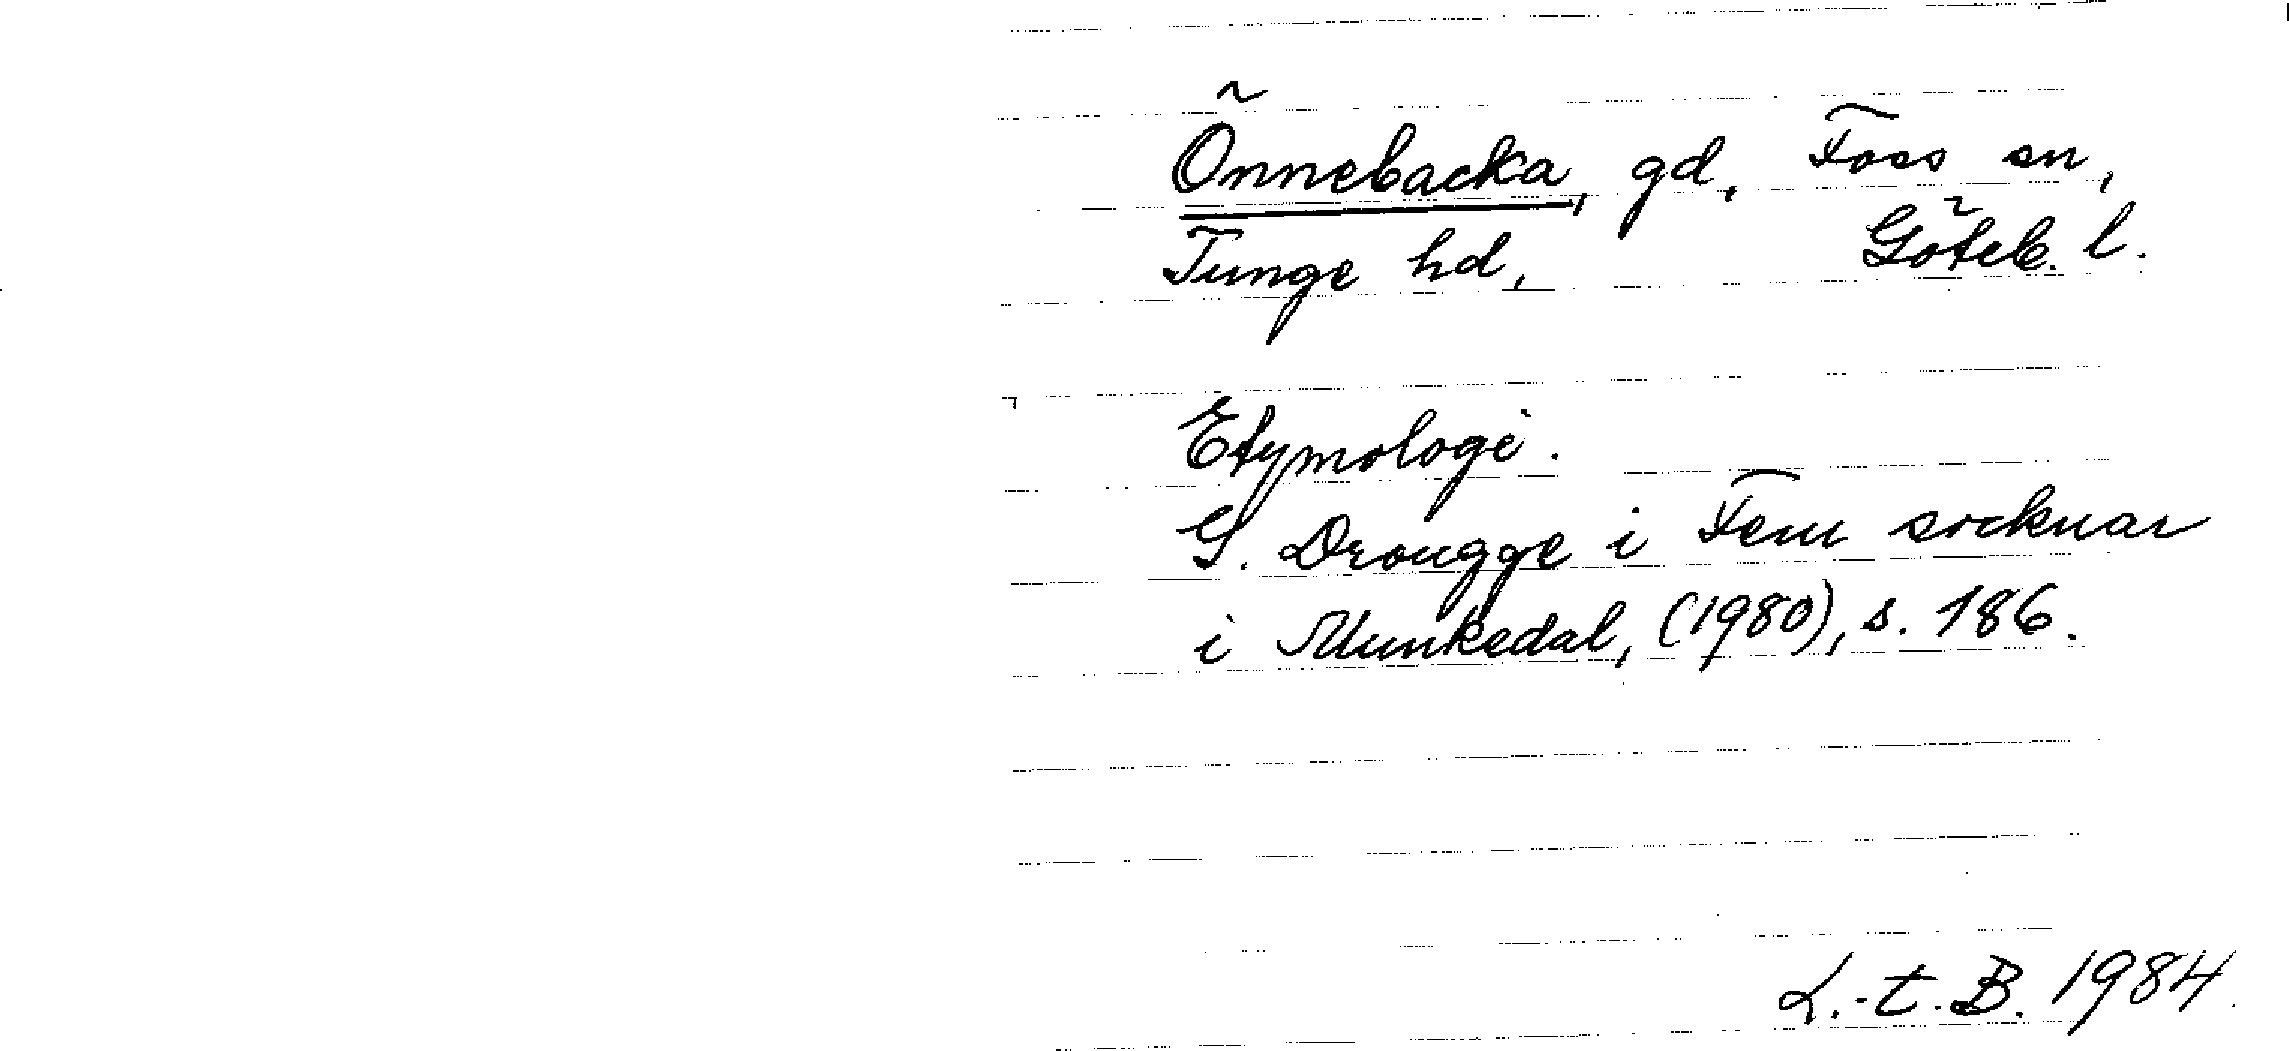 Önnebacka, gd, Foss sn,
Tunge hd, Göteb. l.
Etymologi.
G. Drougge i Fem socknar
i Munkedal, (1980), s. 186.
L.-t. B. 1984.